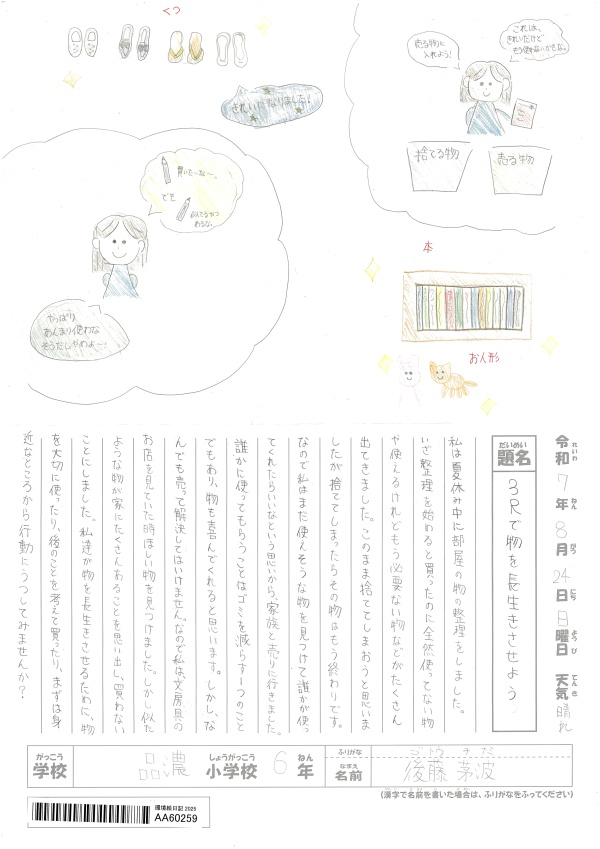 くつ
きれいになりました!
買いたいな〜。
でも
似てるかつ
わるな。
やっぱり
あんまり使わな
そうだしやめよ〜!
売る物に
入れよう!
これは、
きれいだけど
もう使わないかもな。
本
捨てる物
売る物
本
お人形
令和7年8月24日日曜日 天気晴れ
れいわ ねん がつ にち ようび てんき
だいめい
題名
3Rで物を長生きさせよう
私は夏休み中に部屋の物の整理をしました。
いざ整理を始めると買ったのに全然使ってない物
や使えるけれどもう必要ない物などがたくさん
出てきました。このまま捨ててしまおうと思いま
したが捨ててしまったらその物はもう終わりです。
なので私はまだ使えそうな物を見つけて誰かが使っ
てくれたらいいなという思いから、家族と売りに行きました。
誰かに使ってもらうことはゴミを減らす一つのこと
でもあり、物も喜んでくれると思います。しかし、な
んでも売って解決してはいけません。なので私は、文房具の
お店を見ていた時ほしい物を見つけました。しかし似た
ような物が家にたくさんあることを思い出し、買わない
ことにしました。私達が物を長生きさせるために、物
を大切に使ったり、後のことを考えて買ったり、まずは身
近なところから行動にうつしてみませんか?
がっこう
学校
品濃
しょうがっこう
小学校
6
ねん
年
ふりがな
ゴトウ チカ
なまえ
名前
後藤茅波
(漢字で名前を書いた場合は、ふりがなをふってください)
環境絵日記 2025
AA60259